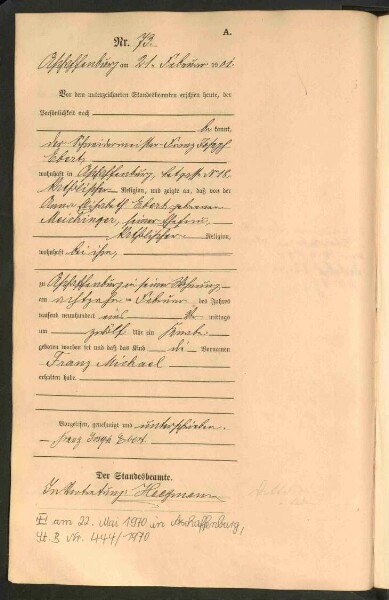 A.
Nr. 73.
Aschaffenburg am 21. Februar 1901.
Vor dem unterzeichneten Standesbeamten erschien heute, der
Persönlichkeit nach
be kannt,
der Schneidermeister Franz Joseph
Ebert,
wohnhaft in Aschaffenburg, N 18.
katholischer Religion, und zeigte an, daß von der
Anna Elisabeth Ebert geborenen
seiner Ehefrau,
katholischer Religion,
wohnhaft bei ihm,
zu Aschaffenburg in seiner Wohnung
am achtzehn ten Februar des Jahres
tausend neunhundert eins Vor mittags
um zwölf Uhr ein Knabe
geboren worden sei und daß das Kind die Vornamen
Franz Michael
erhalten habe.
Vorgelesen, genehmigt und unterschrieben.
Franz Joseph Ebert
Der Standesbeamte.
In Vertretung:
am 22. Mai 1970 in Aschaffenburg,
St. B Nr. 444/1970